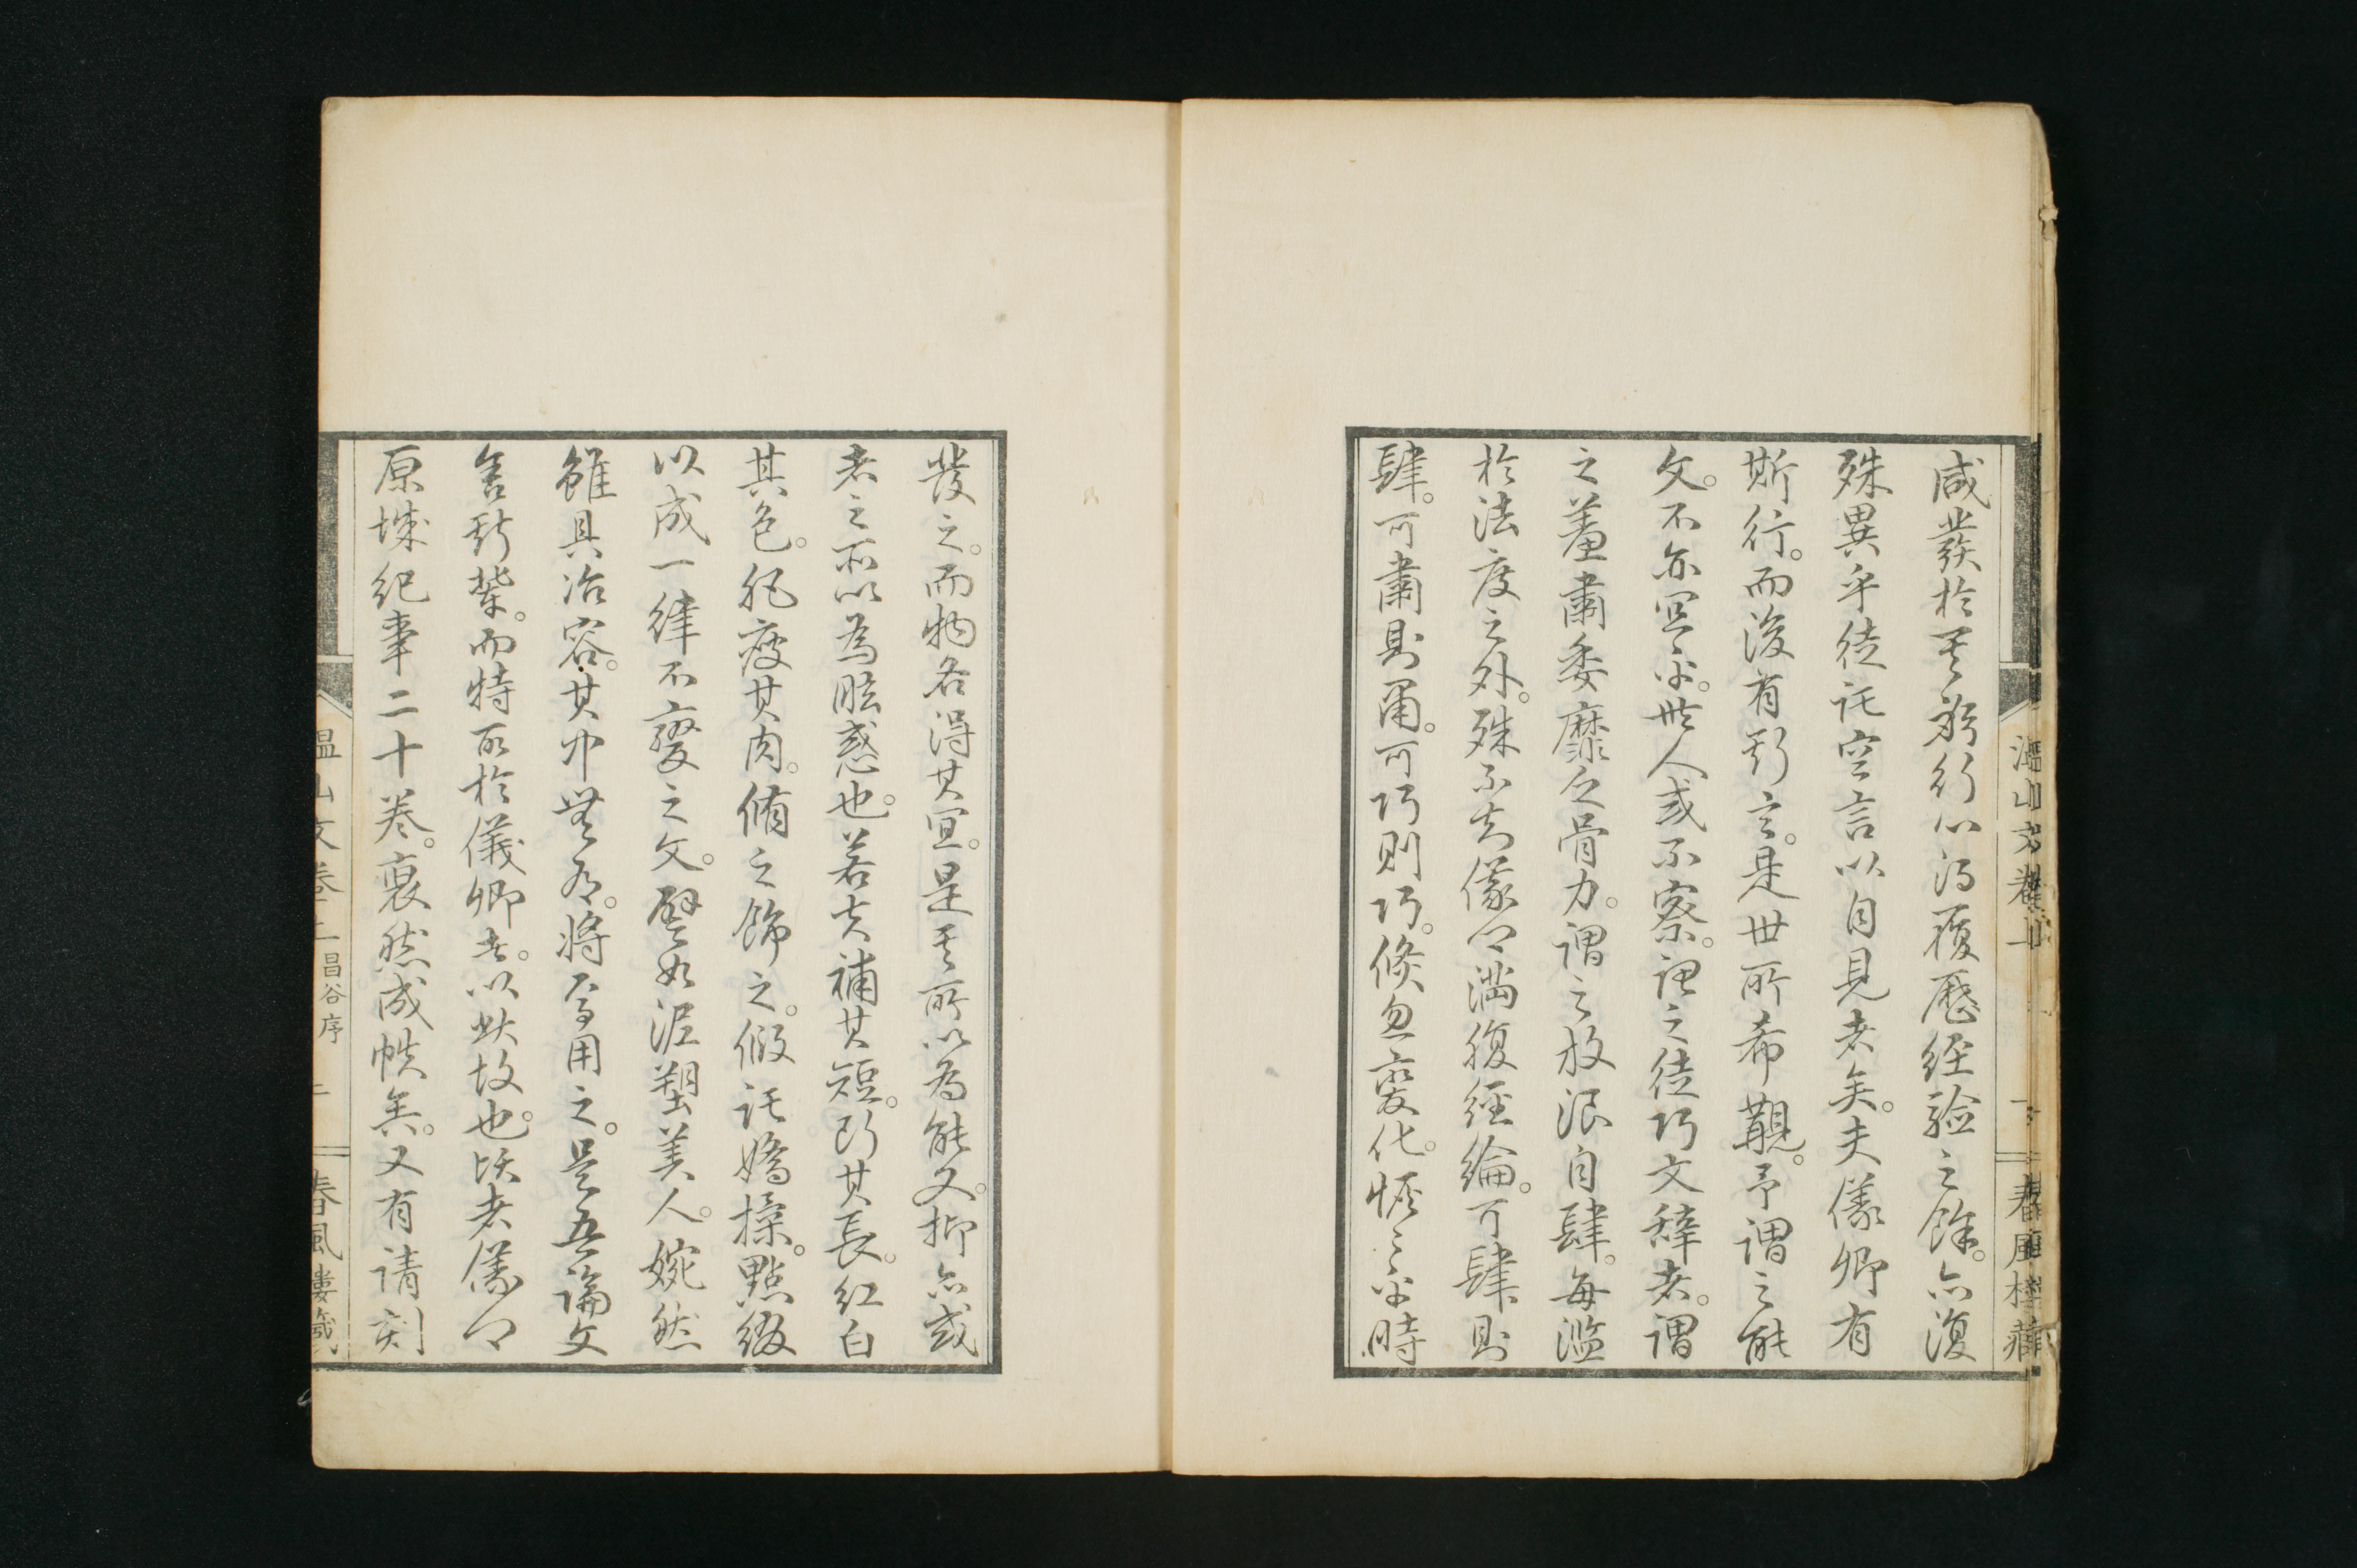 咸發於其躬行心得履歷經驗之餘。亦復
殊異乎徒託空言以自見者矣。夫儀卿有
斯行。而後有斯言。是世所希覯。予謂之能
文。不亦宜乎。世人或不察。謂之徒巧文辭者。謂
之羞肅委靡乏骨力。謂之放浪自肆。每濫
於法度之外。殊不知儀卿滿腹經綸。可肆則
肆。可肅則肅。可巧則巧。倏忽變化。恢々乎時
發之。而物各得其宜。是其所以為能文。抑亦或
者之所以為眩惑也。若夫補其短。斷其長。紅白
其色。肥瘦其肉。脩之飾之。假託矯揉。點綴
以成一律不變之文。譬如泥塑美人。婉然
雖具冶容。其中無有。將焉用之。是吾論文
舍斯輩。而特取於儀卿者。以此故也。頃者儀卿
原城紀事二十卷。裒然成帙矣。又有請刻
溫山文卷二
昌谷序
二
春風樓藏